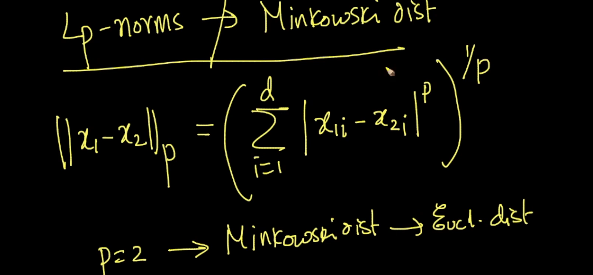 Lp-norms → Minkowski dist
||x₁-x₂||ₚ = (∑_{i=1}^{d} |x₁ᵢ - x₂ᵢ|^p)^{1/p}
p=2 → Minkowski dist → Eucl. dist